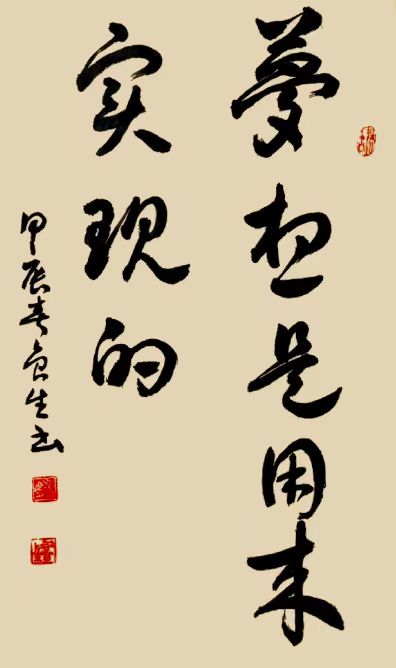 夢想是用来
实现的
甲辰春生书